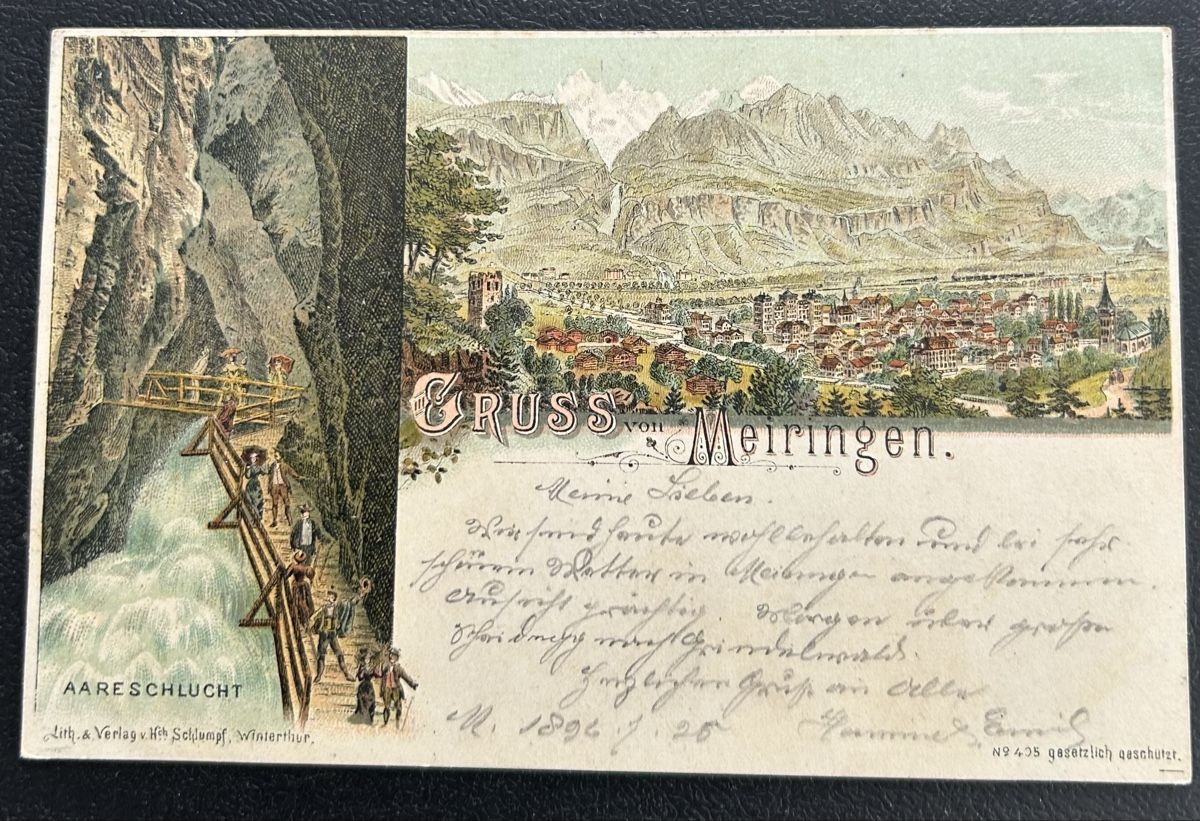 GRUSS von Meiringen.
Meine Lieben.
Wir sind heute wohlbehalten und bei sehr
schönem Wetter in Meiringen angekommen.
Aussicht prächtig. Morgen über große
Scheidegg nach Grindelwald.
Herzlichen Gruß an Alle
M. 189 . 7. 25 Emil
AARESCHLUCHT
Lith. & Verlag v. Hch Schlumpf, Winterthur.
No 405 gesetzlich geschützt.